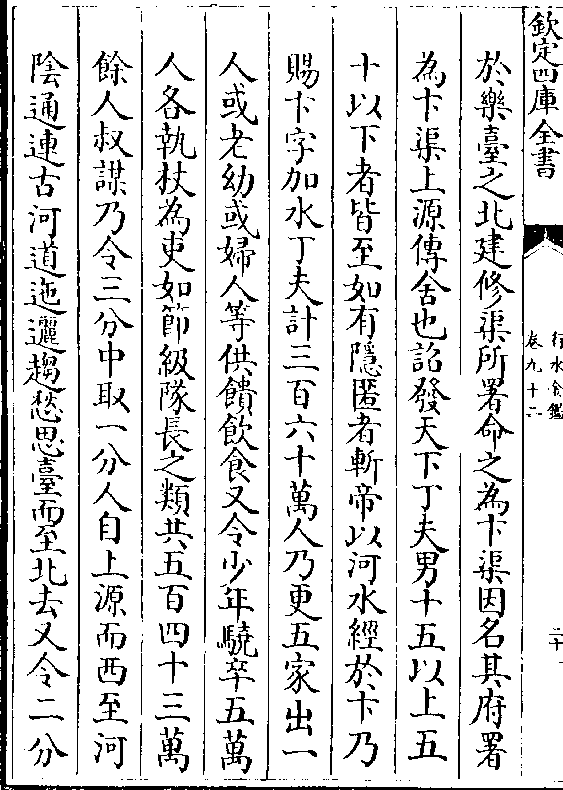 欽定四庫全書
行水金鑑
卷九十二
二十一
於樂臺之北建修渠所署命之為卞渠因名其府署
為卞渠上源傳舍也詔發天下丁夫男十五以上五
十以下者皆至如有隱匿者斬帝以河水經於卞乃
賜卞字加水丁夫計三百六十萬人乃更五家出一
人或老幼或婦人等供饋飲食又令少年驍卒五萬
人各執杖為吏如節級隊長之類共五百四十三萬
餘人叔謀乃令三分中取一分人自上源而西至河
陰通連古河道迤邐趨愁思臺而至北去又令二分